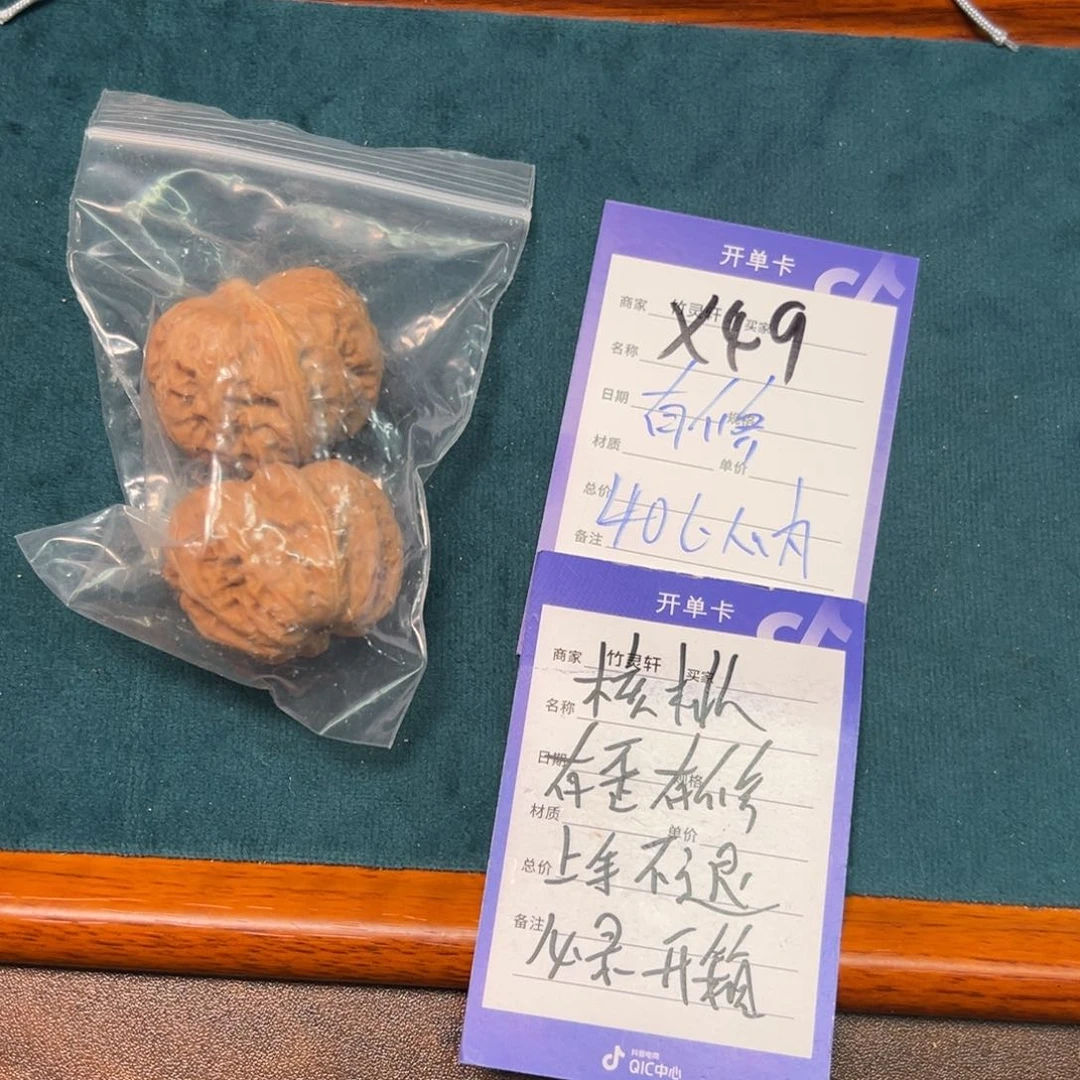 开单卡
商家 竹灵轩 买家
X49
名称
日期 规格
有修
材质 单价
总价
40以内
备注
开单卡
商家 竹灵轩 买家
核桃
名称
日期 规格
有歪有修
材质 单价
总价
上手不退
备注
必录开箱
抖音电商
QIC中心